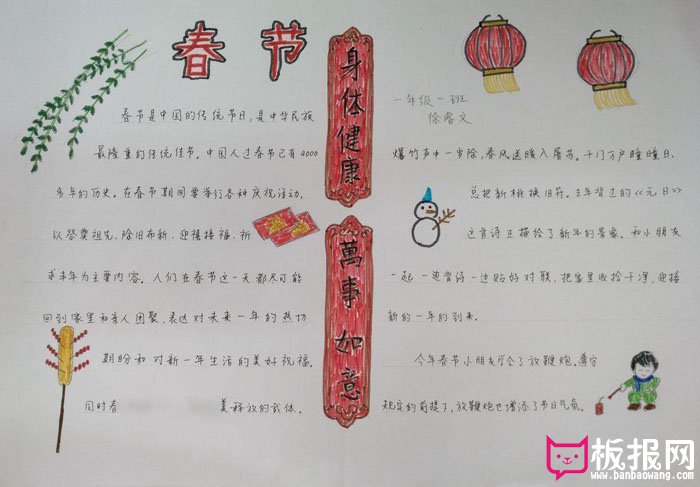 春节
春节是中国的传统节日,是中华民族
最隆重的传统佳节。中国人过春节已有4000
多年的历史。在春节期间要举行各种庆祝活动。
以祭奠祖先、除旧布新、迎禧接福、祈
求丰年为主要内容。人们在春节这一天都尽可能
回到家里和亲人团聚,表达对未来一年的热切
期盼和对新一年生活的美好祝福。
同时春
美释放的载体。
身体健康
萬事如意
一年级一班
徐睿文
爆竹声中一岁除,春风送暖入屠苏。千门万户曈曈日,
总把新桃换旧符。去年背过的《元日》
这首诗正描绘了新年的景象。和小朋友
一起一边背诗一边贴好对联,把家里收拾干净,迎接
新的一年的到来。
今年春节小朋友学会了放鞭炮。遵守
规定的前提下,放鞭炮也增添了节日气氛。
板报网
www.banbaowang.com